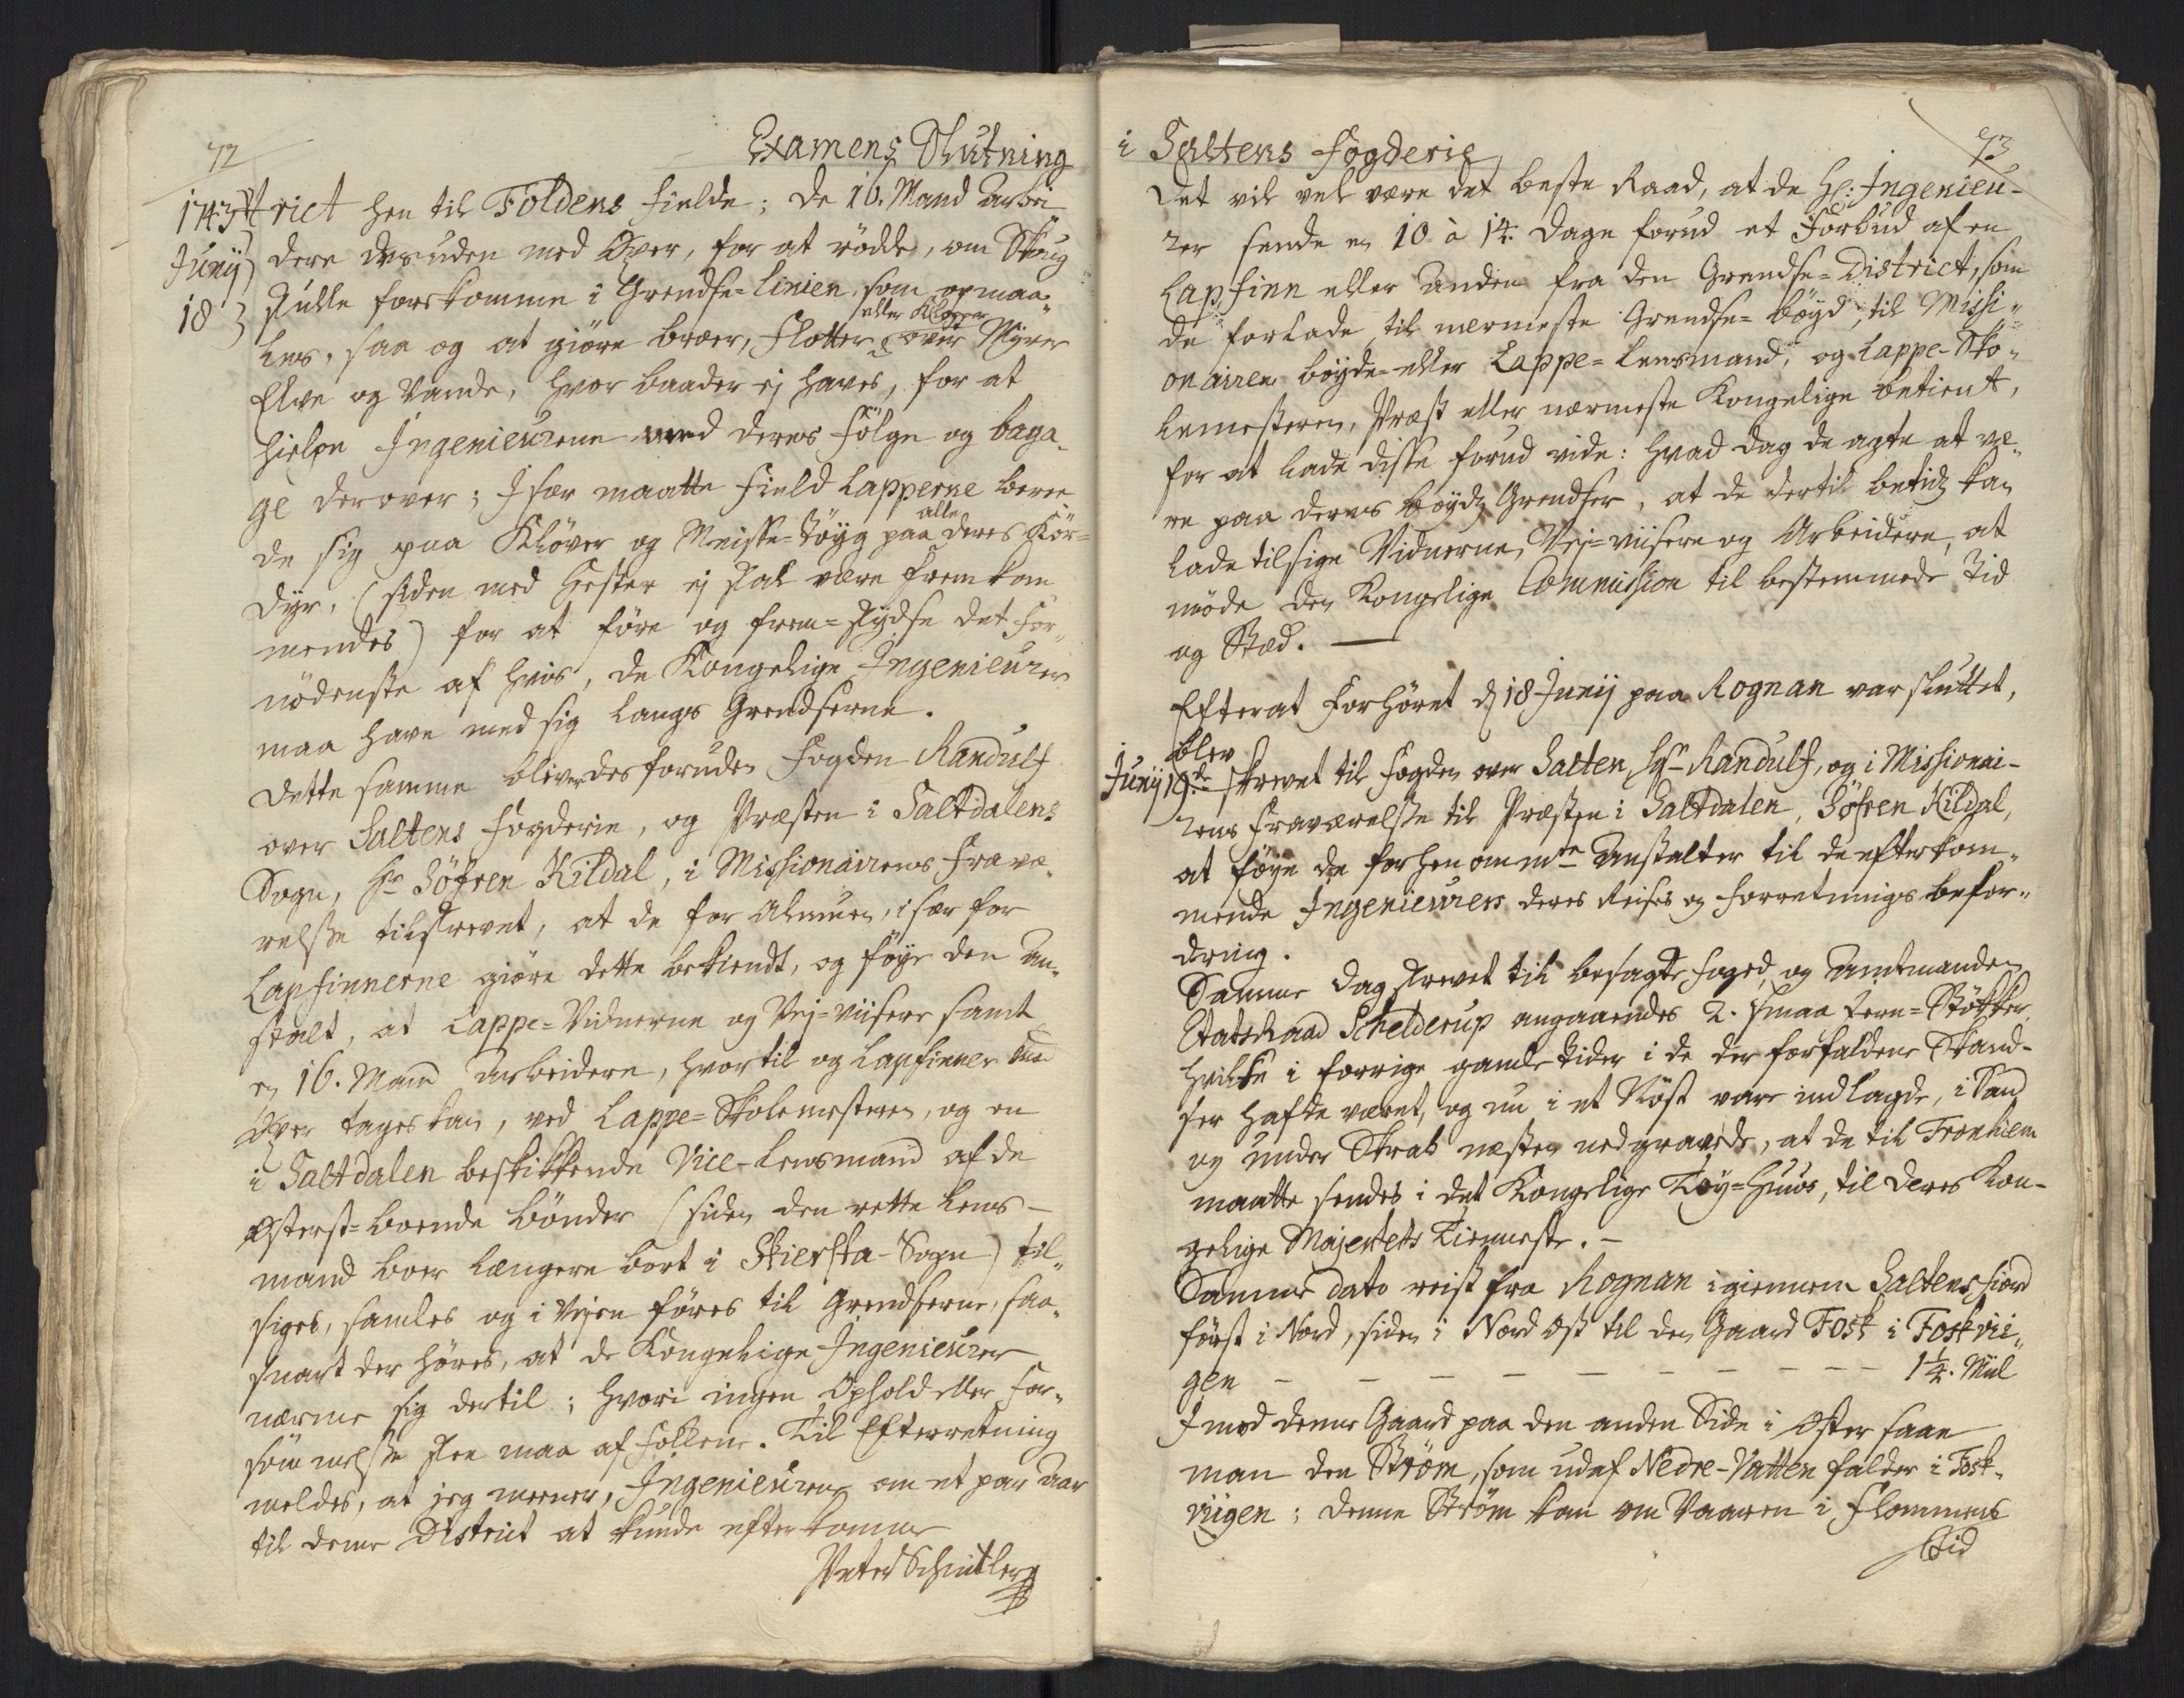 72
Examens Slutning
1743
Junij
18
trict hen til Foldens Fielde; De 16. Mand Arbei
dere desuden med Øxer, for at rödde, om Skoug
skulle forekomme i Grendse-Linien, som opmaa-
les, saa og at giöre broer, Flotter eller Klopper over Myrer
Elve og Vande, hvor baader ej haves, for at
hielpe Ingenieurene med deres Fölge og baga-
ge derover; Især maatte Field Lapperne bere
de sig paa Klöver og Meisse-Töyg paa alle deres Kör-
dyr, (siden med Hester ej skal være fremkom
mendes) for at före og frem-skydse det For-
nödenste af hvis, de Kongelige Ingenieurer
maa have med sig langs Grendserne.
Dette samme bliver desforuden Fogden Randulf
over Saltens Fogderie, og Præsten i Saltdalens
Sogn, Hr Söfren Kildal, i Missionairens Fravæ-
relsse tilskrevet, at de for Almuen, i sær for
Lapfinnerne giöre dette bekiendt, og föye den An-
stalt, at Lappe-Vidnerne og Vej-viisere samt
en 16. Mand Arbeidere, hvortil og Lapfinner med
Øxer tages kan, ved Lappe-Skolemesteren, og en
i Saltdalen beskikkende Vice-Lensmand af de
Østerst-boende bönder (siden den rette Lens-
mand boer længere bort i Skiersta-Sogn) til-
siges, samles og i Vejen föres til Grendserne, saa-
snart der höres, at de Kongelige Ingenieurer
nærme sig dertil; hvori ingen Ophold eller For-
sömmelsse skee maa af Folkene. Til Efterretning
meldes, at jeg meener, Ingenieurene om et par Aar
til denne District at kunde efterkomme
Peter Schnitler
73
i Saltens Fogderie
Det vil vel være det beste Raad, at de Hr: Ingenieu-
rer sende en 10 à 14. Dage forud et Forbud af en
Lapfinn eller anden fra den Grendse-District, som
de forlade, til nærmeste Grendse-bögd, til Missi-
onairen bögde- eller Lappe-Lensmand, og Lappe-Sko-
lemesteren, Præst eller nærmeste Kongelige betient,
for at lade disse forud vide: hvad dag de agte at væ-
re paa deres bögds Grendser, at de dertil betids kan
lade tilsige Vidnerne, Vej-viisere og Arbeidere, at
möde den Kongelige Commission til bestemmede Tid
og Stæd. —
Efterat Forhöret d 18 Junij paa Rognan var sluttet,
blev
Junij 19de skrevet til Fogden over Salten, Hr Randulf, og i Missionai-
rens Fraværelsse til Præsten i Saltdalen, Söfren Kildal,
at föye de forhen ommte Anstalter til de efterkom-
mende Ingenieurers deres Reises og Forretnings befor-
dring.
Samme Dag skrevet til besagte Foged, og Amtmanden
EtatsRaad Schelderup angaaendes 2. smaa Jern-Stökker,
hvilke i forrige gamle Tider i de der forfaldene Skand-
ser hafde været, og nu i et Nöst vare indlagde, i Sand
og under Skrab næsten nedgravede, at de til Tronhiem
maatte sendes i det Kongelige Töy-Huus, til Deres Kon-
gelige Majestets Tienneste. —
Samme dato reist fra Rognan igiennem Saltens fiord
först i Nord, siden i Nord Ost til den Gaard Fosk i Foskvii-
gen — — — — — — — — — 1 1/4. Miil
Imod denne Gaard paa den anden Side i Øster saae
man den Ström, som udaf Nedre-Vatten falder i Fosk-
viigen; denne Ström kan om Vaaren i Flommens
Tid